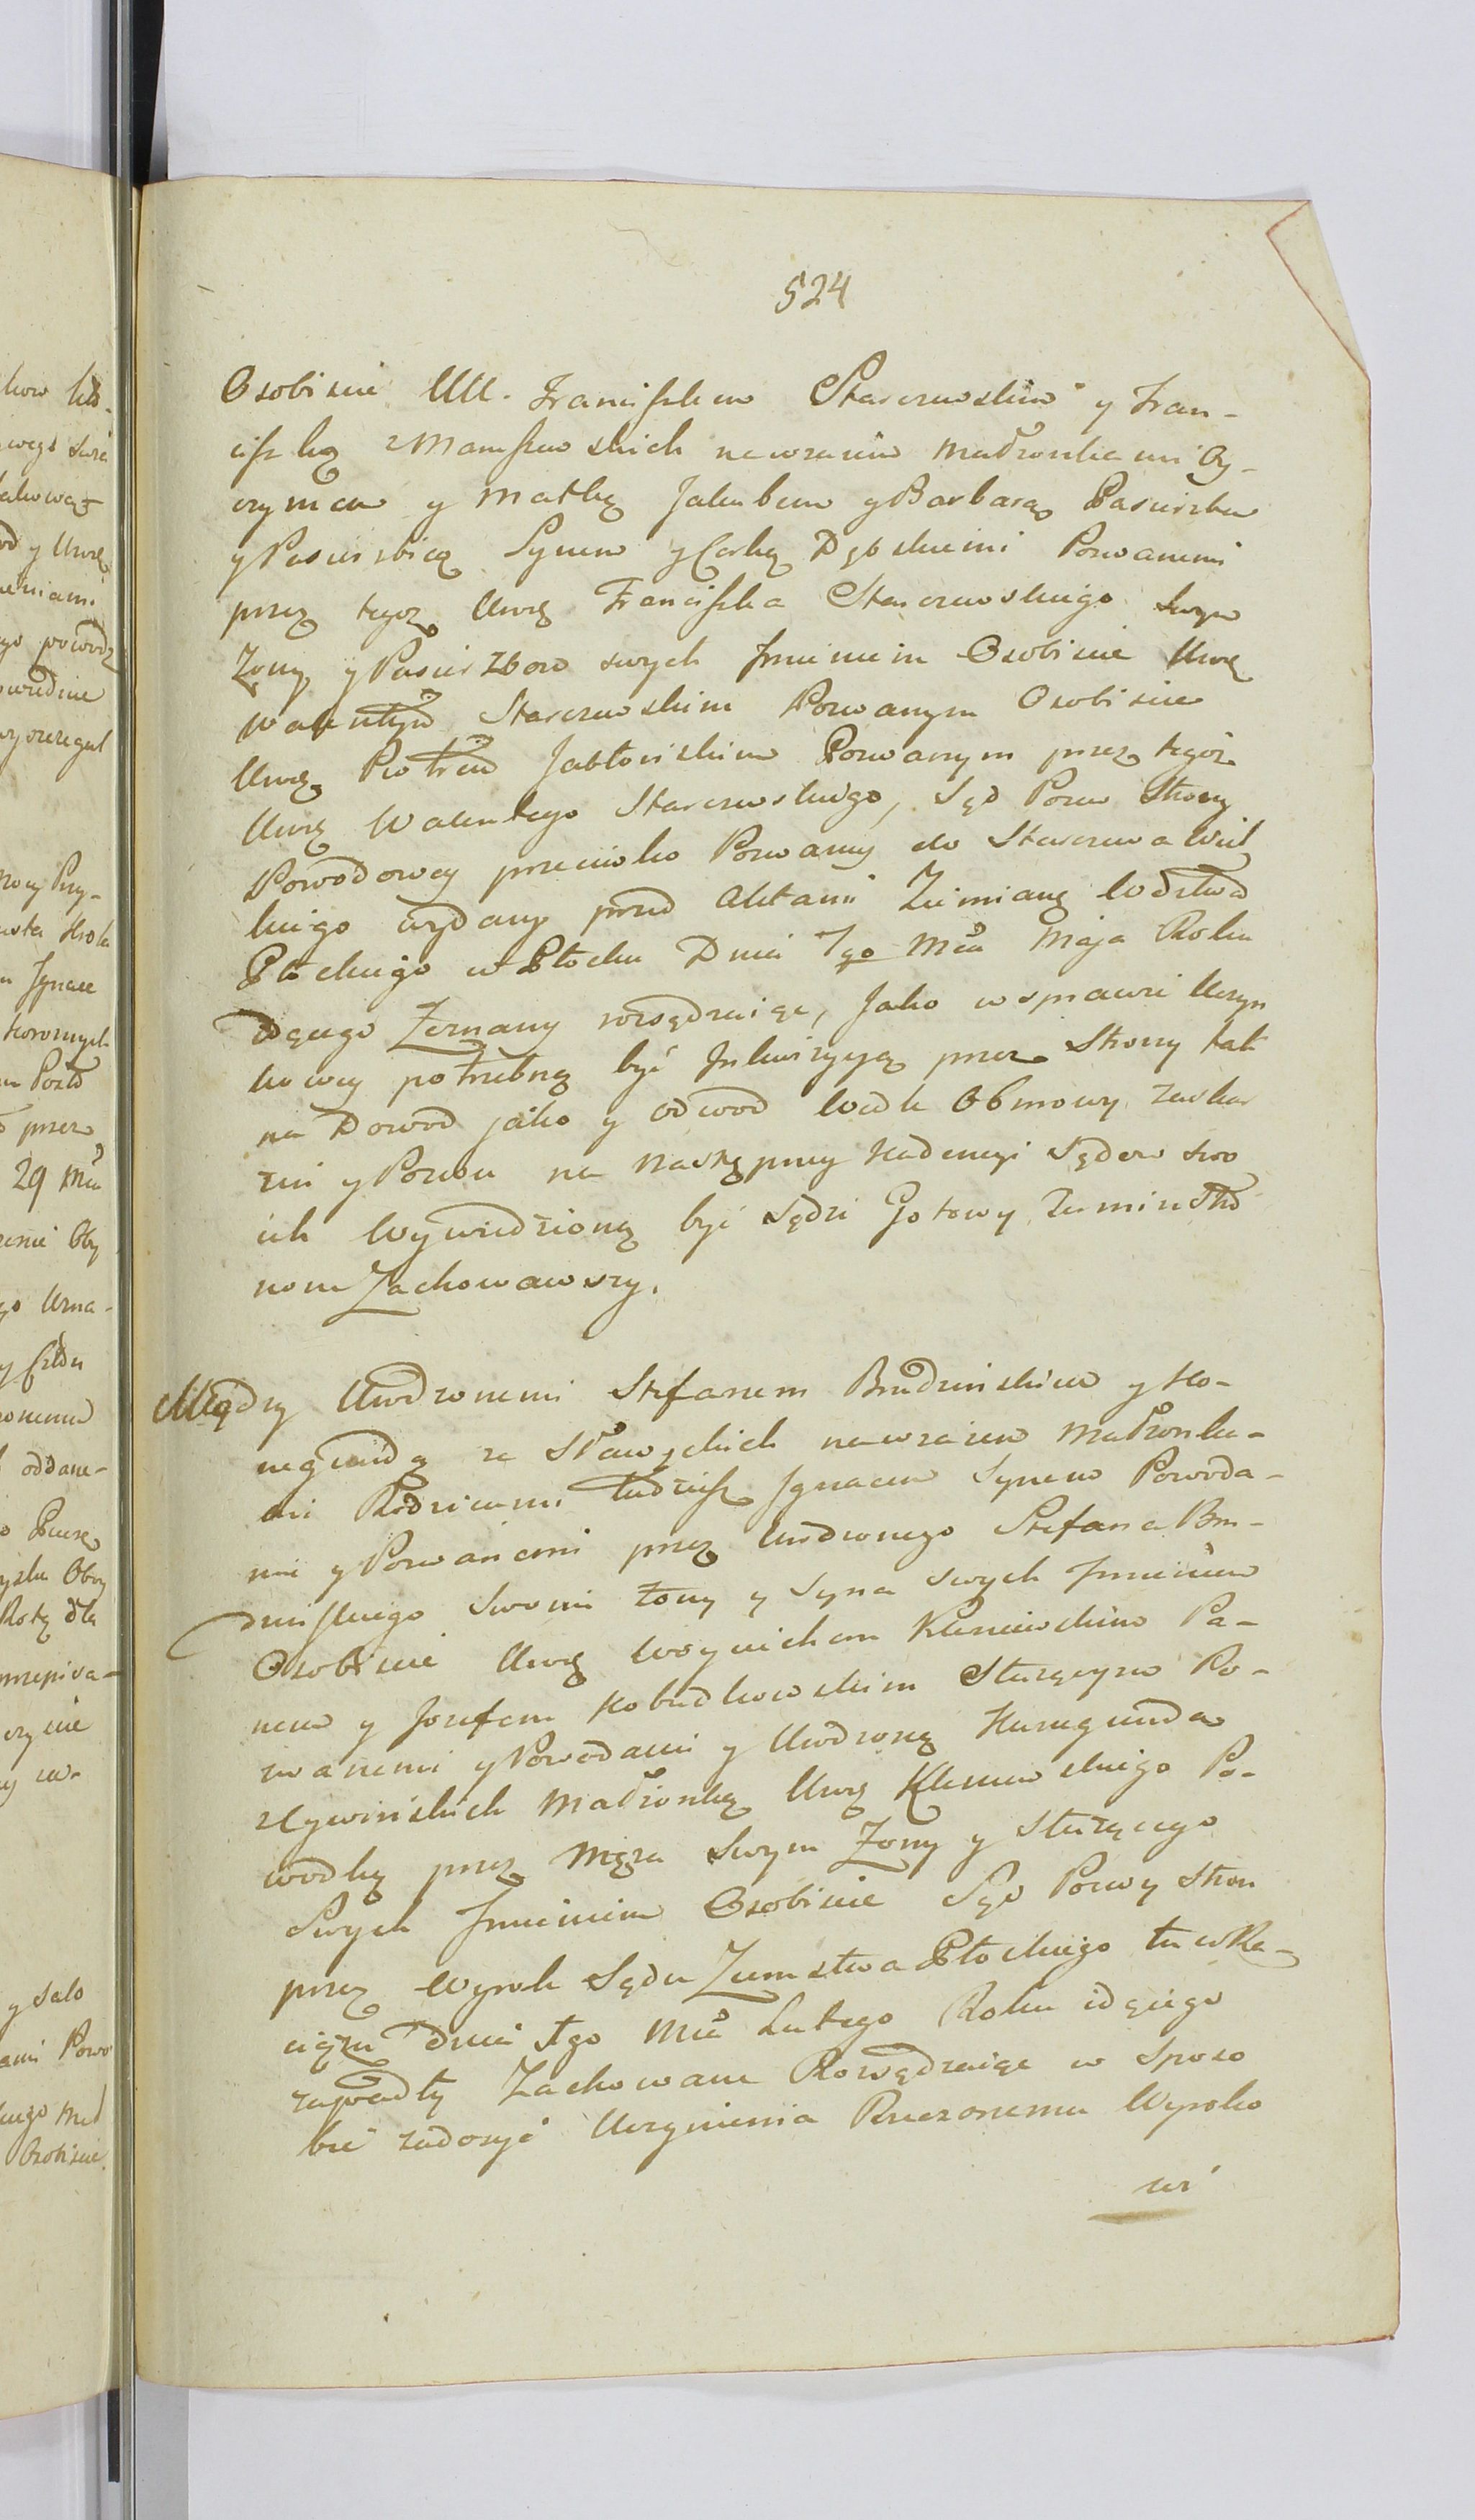 524
Osobiscie UU. Franciszkiem Starczewskim y Fran-
ciszką z Maniszewskich nawzaiem Małżonkami Oy-
czymem y Matką Jakubem y Barbarą Pasierzbem
y Pasierzbicą Synem y Corką Dębskiemi Pozwanemi
przez tegoż Urog Franciszka Starczewskiego swym
Zony y Pasierzbow swych Imieniem Osobiscie Urog
Walentym Starczewskim Pozwanym Osobiscie
Urog Piotrem Jabłonskim Pozwanym przez tegoż
Urog Walentego Starczewskiego, Sąd Pozew Strony
Powodowey przeciwko Pozwaney do Starczewa Wiel
kiego wydany przed Aktami Ziemians Wodztwa
Płockiego w Płocku Dnia 7go Mca Maja Roku
idącego Zeznany rozsądzaiąc, Jako w sprawie Uczyn
kowey potrzebną być Inkwizycyą przez Strony tak
na Dowod jako y odwod wedle Obmowy zaskar
zeń y Pozwu na następney Kadencyi Sądow swo
ich Wywiedzioną być sądzi Gotowy Ziemiństwo
nom Zachowawszy.
Między Urodzonemi Stefanem Brudzinskim y Ko-
negundą ze Sławęckich nawzaiem Małżonka-
mi Rodzicami tudzież Ignacem Synem Powoda-
mi y Pozwanemi przez Urodzonego Stefana Bru-
dzinskiego Swoim żony y Syna swych Imieniem
Osobiscie Urog Woyciechem Kleniewskim Pa-
nem y Jozefem Kobudkowskim Służącym Po-
zwanemi y Powodami y Urodzoną Kunegunda
z Cywińskich Małżonką Urog Kleniewskiego Po-
wodką przez Męża Swym Zony y Służącego
Swych Imieniem Osobiscie Sąd Pozwy Stron
przez Wyrok Sądu Ziemstwa Płockiego tu w Ra-
ciążu Dnia 1go Mca Lutego Roku idącego
zapadły Zachowane Rozsądzaiąc w Sposo
bie zadosyć Uczynienia Rzeczonemu Wyroko
wi